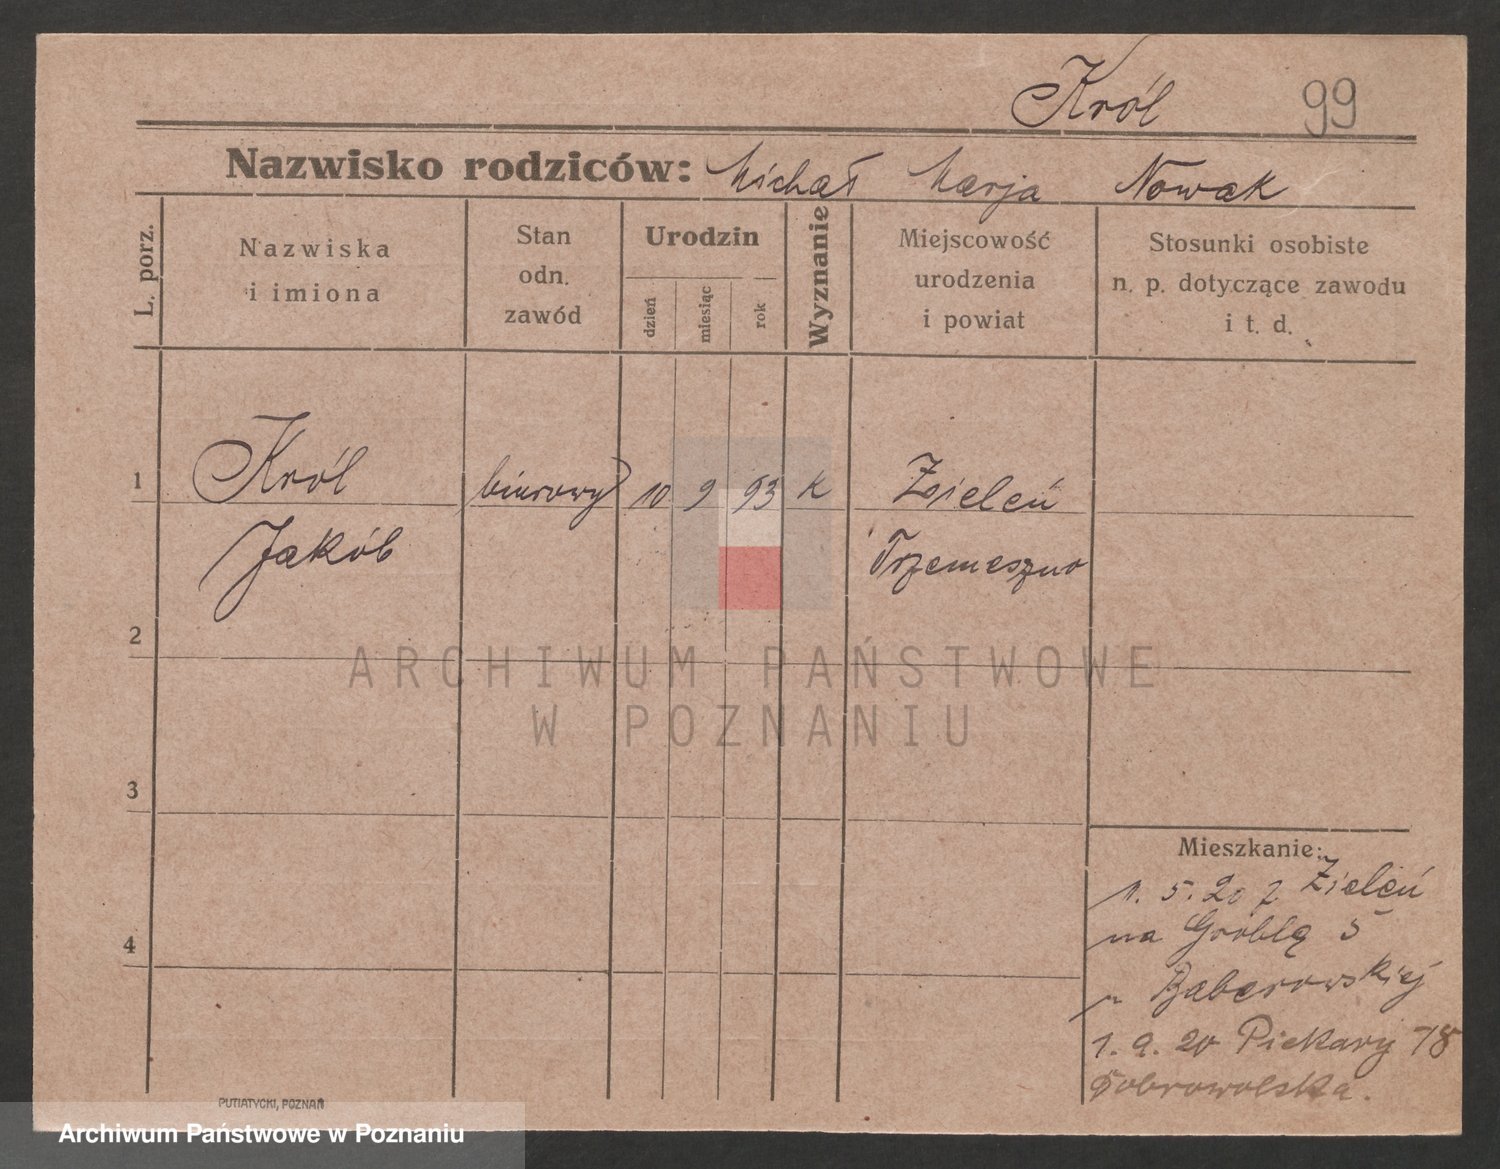 Król 99
Nazwisko rodziców: Michał Marja Nowak
L. porz.
Nazwiska
i imiona
Stan
odn.
zawód
Urodzin
dzień
miesiąc
rok
Wyznanie
Miejscowość
urodzenia
i powiat
Stosunki osobiste
n. p. dotyczące zawodu
i t. d.
1 Król biurowy 10 9 93 K Zieleń
Jakób Trzemeszno
2
ARCHIWUM PAŃSTWOWE
W POZNANIU
3
Mieszkanie:
1. 5. 20 z Zieleń
4 na Groblą 5
Baberowskiej
1. 9. 20 Piekary 78
Dobrowolska.
PUTIATYCKI, POZNAŃ
Archiwum Państwowe w Poznaniu